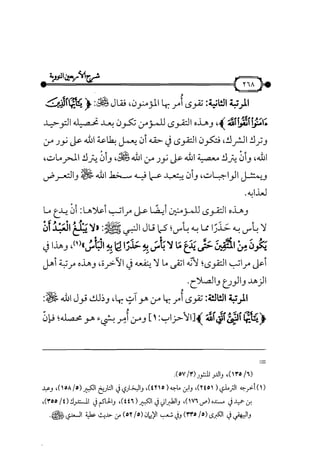 شرح الأربعين النووية
٢٦٨
المرتبة الثانية: تقوى أُمر بها المؤمنون، فقال ﷻ: ﴿يَٰٓأَيُّهَا ٱلَّذِينَ
ءَامَنُوا۟ ٱتَّقُوا۟ ٱللَّهَ﴾، وهذه التقوى للمؤمن تكون بعد تحصيله التوحيد
وترك الشرك، فتكون التقوى في حقه أن يعمل بطاعة الله على نور من
الله، وأن يترك معصية الله على نور من الله ﷻ، وأن يترك المحرمات،
ويمتثل الواجبات، وأن يبتعد عما فيه سخط الله ﷻ والتعرض
لعذابه.
وهذه التقوى للمؤمنين أيضًا على مراتب أعلاها: أن يدع ما
لا بأس به حَذَرًا مما به بأس؛ كما قال النبي ﷺ: «لا يَبْلُغُ الْعَبْدُ أَنْ
يَكُونَ مِنَ الْمُتَّقِينَ حَتَّى يَدَعَ مَا لا بَأْسَ بِهِ حَذَرًا لِمَا بِهِ الْبَأْسُ»(١)، وهذا في
أعلى مراتب التقوى؛ لأنه اتقى ما لا ينفعه في الآخرة، وهذه مرتبة أهل
الزهد والورع والصلاح.
المرتبة الثالثة: تقوى أُمر بها من هو آتٍ بها، وذلك قول الله ﷻ:
﴿يَٰٓأَيُّهَا ٱلنَّبِىُّ ٱتَّقِ ٱللَّهَ﴾ [الأحزاب: ١] ومن أُمِر بشيء هو محصله؛ فإنَّ
=
(٦/ ١٣٥)، والدر المنثور (٣/ ٥٧).
(١) أخرجه الترمذي (٢٤٥١)، وابن ماجه (٤٢١٥)، والبخاري في التاريخ الكبير (٥/ ١٥٨)، وعبد
بن حميد في مسنده (ص ١٧٦)، والطبراني في الكبير (٤٤٦)، والحاكم في المستدرك (٤/ ٣٥٥)،
والبيهقي في الكبرى (٥/ ٣٣٥) وفي شعب الإيمان (٥/ ٥٢) من حديث عطية السعدي ﷺ.